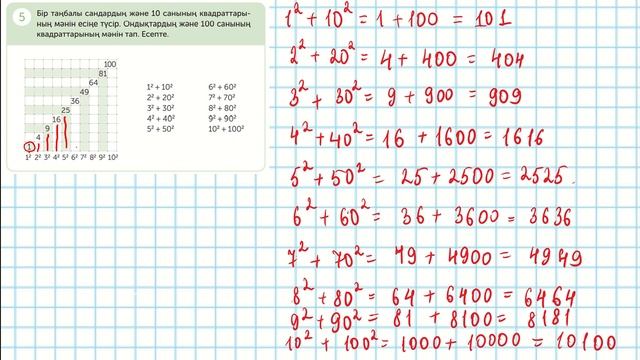 5 Бір таңбалы сандардың және 10 санының квадраттары-
ның мәнін есіңе түсір. Ондықтардың және 100 санының
квадраттарының мәнін тап. Есепте.
100
81
64
49
36
25
16
9
4
1
1² 2² 3² 4² 5² 6² 7² 8² 9² 10²
1² + 10² 6² + 60²
2² + 20² 7² + 70²
3² + 30² 8² + 80²
4² + 40² 9² + 90²
5² + 50² 10² + 100²
1² + 10² = 1 + 100 = 101
2² + 20² = 4 + 400 = 404
3² + 30² = 9 + 900 = 909
4² + 40² = 16 + 1600 = 1616
5² + 50² = 25 + 2500 = 2525.
6² + 60² = 36 + 3600 = 3636
7² + 70² = 49 + 4900 = 4949
8² + 80² = 64 + 6400 = 6464
9² + 90² = 81 + 8100 = 8181
10² + 100² = 1000 + 10000 = 10100